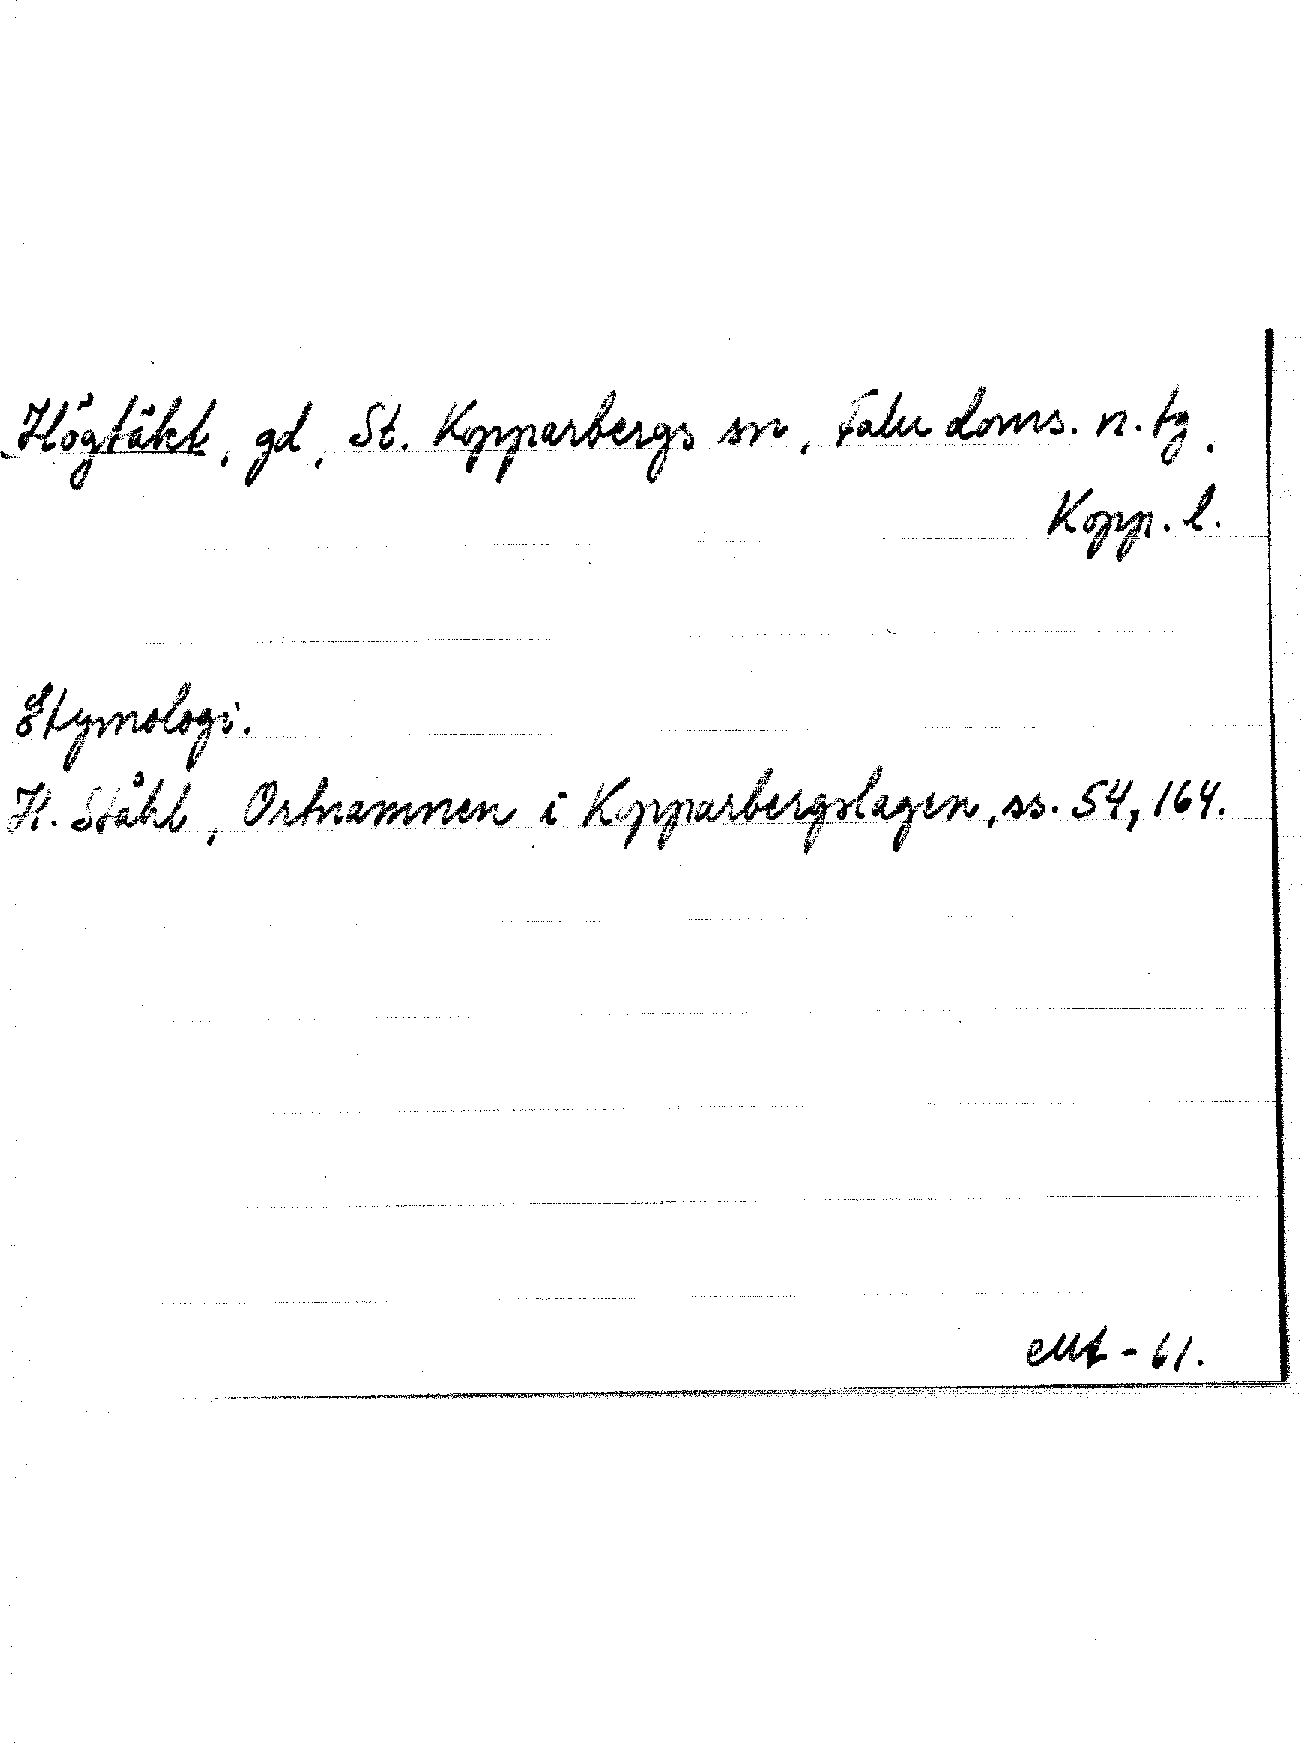 Högtäkt, gd, St. Kopparbergs sn, Falu doms. n. tg.
Kopp. l.
Etymologi.
H. Ståhl, Ortnamnen i Kopparbergslagen, ss. 54, 164.
- 61.